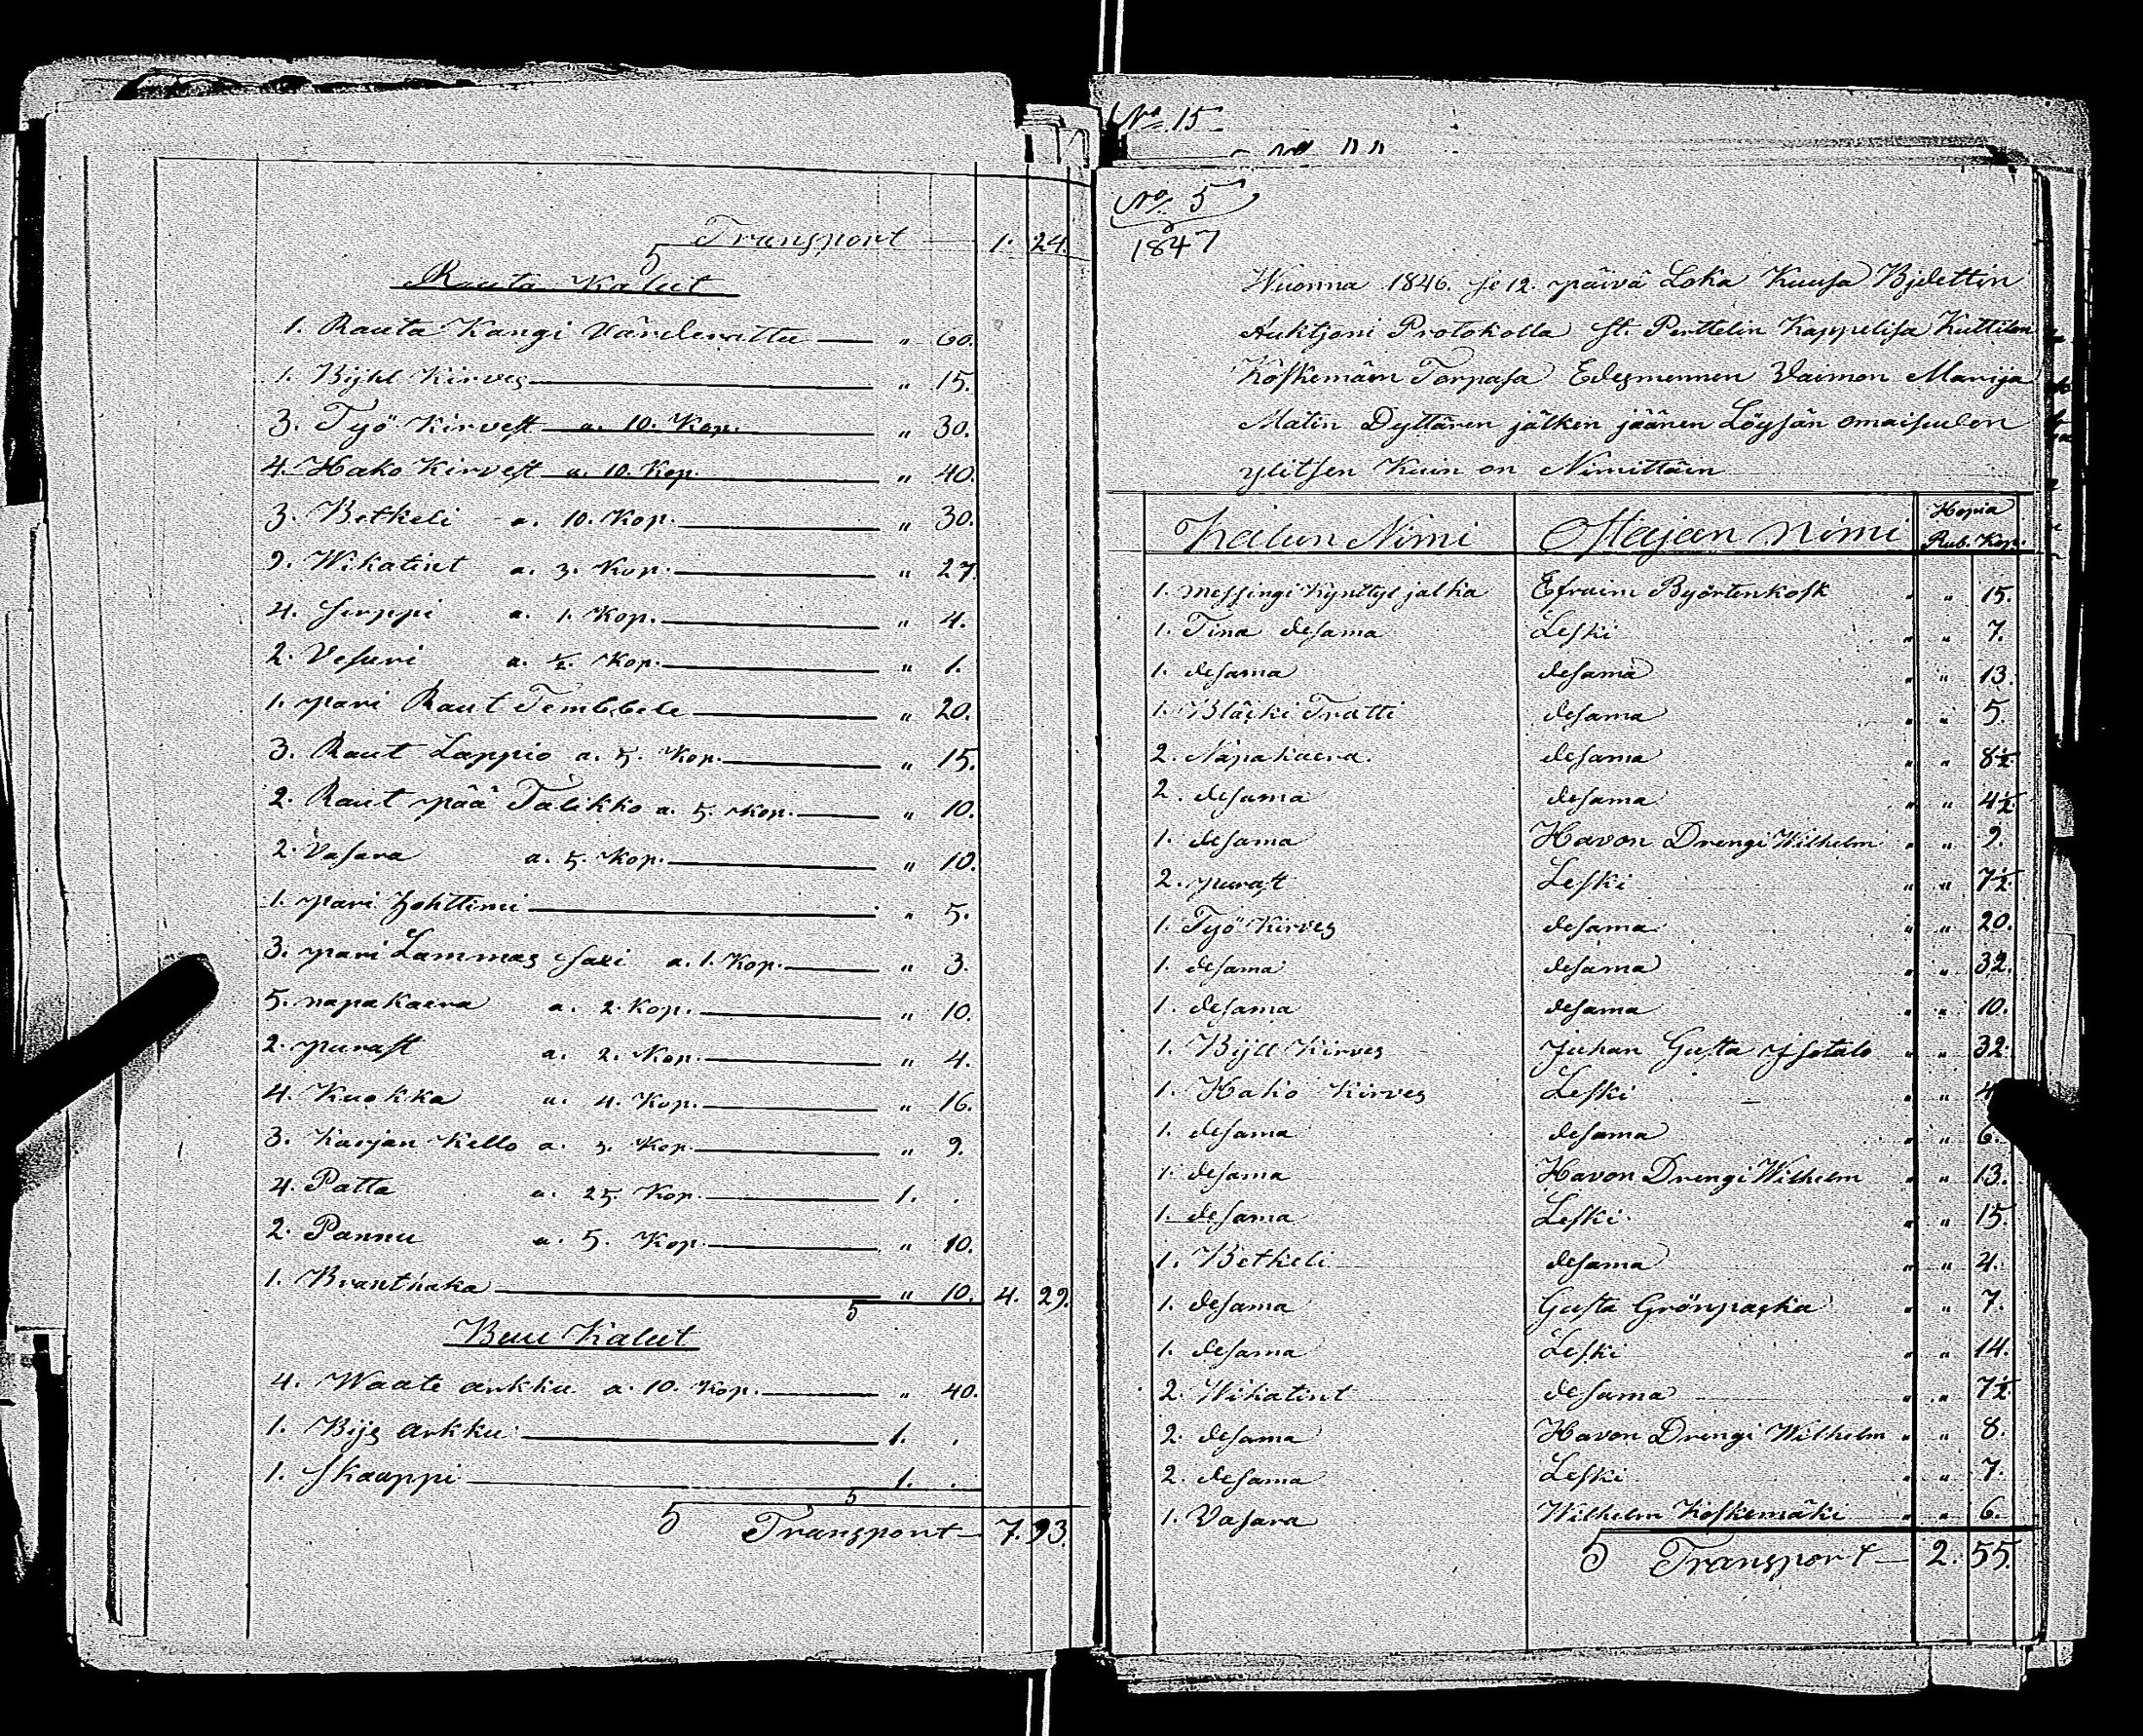 Transport 1. 24.
Rauta Kalut
1. Rauta Kangi Värderattu " 60.
1. Bijhl Kirves " 15.
3. Työ Kirvest a. 10. Kop. " 30.
4. Hako Kirvest a. 10. Kop. " 40.
3. Betkeli a. 10. Kop. " 30.
9. Wikatint a. 3. Kop. " 27.
4. Sirppi a. 1. Kop. " 4.
2. Vesuri a. ½. Kop. " 1.
1. pari Raut Tembbele " 20.
3. Raut Lappio a. 5. Kop. " 15.
2. Raut pää Talikko a. 5. Kop. " 10.
2. Vasara a. 5. Kop. " 10.
1. pari Hohttimi " 5.
3. pari Lammas saxi a. 1. Kop. " 3.
5. napakaera a. 2. Kop. " 10.
2. purast a. 2. Kop. " 4.
4. Kuokka a. 4. Kop. " 16.
3. Karjan Kello a. 3. Kop. " 9.
4. Patta a. 25. Kop. 1. .
2. Pannu a. 5. Kop. " 10.
1. Branthaka " 10. 4. 29.
Buu Kalut
4. Waate arkku a. 10. Kop. " 40.
1. Bijs arkku 1. .
1. Skauppi 1. .
Transport 7. 93.
No. 15
No. 5
1847
Wuonna 1846. se 12. päivä Loka Kuusa Bjdettin
Auktjoni Protokolla St. Perttelin Kappelisa Kuttilan
Koskemäen Torpasa Edesmennen Vaimon Marija
Matin Dyttären jälken jäänen Löysän omaisuden
ylitsen Kuin on Nimittäin
Kalun Nimi Ostajan Nimi Hopia
Rub. Kop.
1. messingi Kynttyl jalka Efraim Byörtenkosk " " 15.
1. Tina desama Leski " " 7.
1. desama desama " " 13.
1. Bläcki Tratti desama " " 5.
2. Napakaera. desama " " 8½
2. desama desama " " 4½
1. desama Havon Drengi Wilhelm " " 9.
2. purast Leski " " 7½
1. Työ Kirves desama " " 20.
1. desama desama " " 32.
1. desama desama " " 10.
1. Bijll Kirves Juhan Gusta Isotalo " " 32.
1. Hako Kirves Leski " " 4
1. desama desama " " 6.
1. desama Havon Drengi Wilhelm " " 13.
1. desama Leski " " 15.
1. Betkeli desama " " 4.
1. desama Gusta Grönpacka " " 7.
1. desama Leski " " 14.
2. Wikatint desama " " 7½
2. desama Havon Drengi Wilhelm " " 8.
2. desama Leski " " 7.
1. Vasara Wilhelm Koskemäki " " 6.
Transport 2. 55.